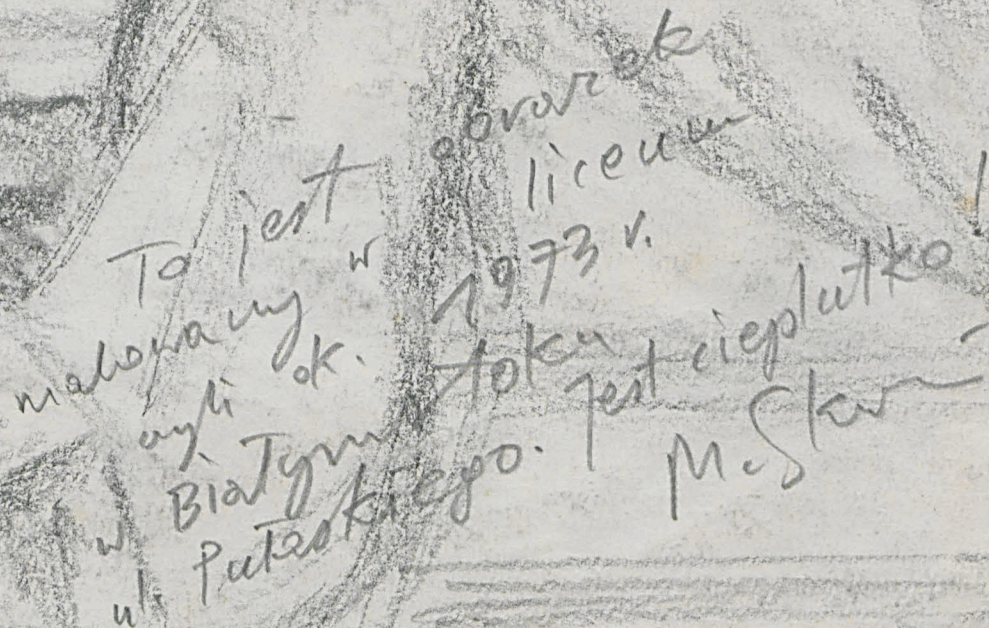 To jest obrazek
malowany w liceum
czyli ok. 1973 r.
w Białymstoku
ul. Pułaskiego. Jest cieplutko!
M. Skw